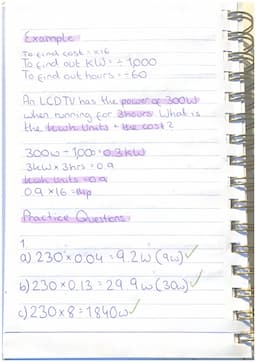 Example
To find cost = x16
To find out KW = ÷ 1,000
To find out hours = ÷60
An LCD TV has the power of 300W
when running for 3hours. What is
the kwh Units + the cost?
300w ÷ 1,000 = 0.3KW
3KW x 3hrs = 0.9
kwh Units = 0.9
0.9 x 16 = 14p
Practice Questions
1.
a) 230 x 0.04 = 9.2w (9w) ✓
b) 230 x 0.13 = 29.9w (30w) ✓
c) 230 x 8 = 1840w ✓